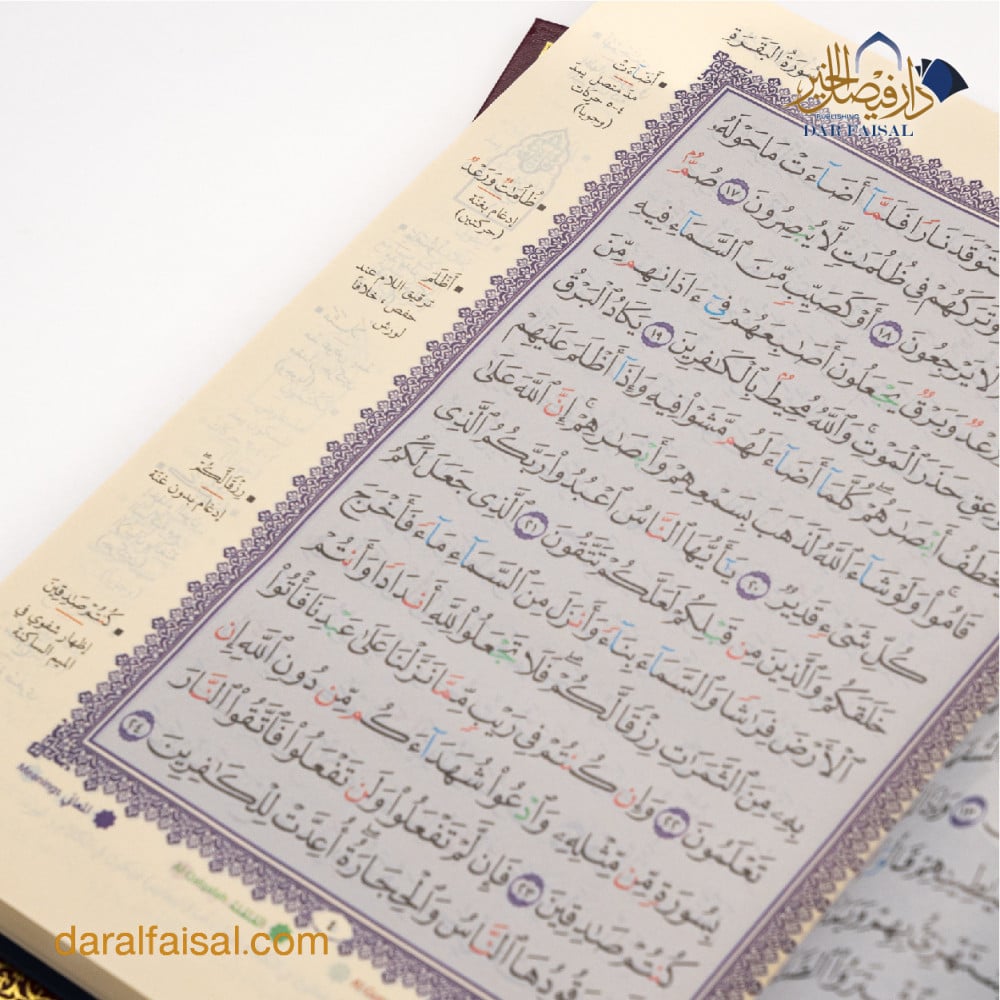 سُورَةُ البَقَرَةِ
دار فيصل الخير
PUBLISHING
DAR FAISAL
أَضَآءَتْ
مد متصل يمد
٤-٥ حركات
(وجوباً)
ظُلُمَٰتٌ وَرَعْدٌ
إدغام بغنة
(حركتين)
أَظْلَمَ
ترقيق اللام عند
حفص خلافاً
لورش
رِزْقًا لَّكُمْ
إدغام بدون غنة
كُنتُمْ صَٰدِقِينَ
إظهار شفوي في
الميم الساكنة
ٱسْتَوْقَدَ نَارًا فَلَمَّآ أَضَآءَتْ مَا حَوْلَهُۥ
وَتَرَكَهُمْ فِى ظُلُمَٰتٍ لَّا يُبْصِرُونَ ١٧ صُمٌّۢ
لَا يَرْجِعُونَ ١٨ أَوْ كَصَيِّبٍ مِّنَ ٱلسَّمَآءِ فِيهِ
وَرَعْدٌ وَبَرْقٌ يَجْعَلُونَ أَصَٰبِعَهُمْ فِىٓ ءَاذَانِهِم مِّنَ
ٱلصَّوَٰعِقِ حَذَرَ ٱلْمَوْتِ ۚ وَٱللَّهُ مُحِيطٌۢ بِٱلْكَٰفِرِينَ ١٩ يَكَادُ ٱلْبَرْقُ
يَخْطَفُ أَبْصَٰرَهُمْ ۖ كُلَّمَآ أَضَآءَ لَهُم مَّشَوْا۟ فِيهِ وَإِذَآ أَظْلَمَ عَلَيْهِمْ
قَامُوا۟ ۚ وَلَوْ شَآءَ ٱللَّهُ لَذَهَبَ بِسَمْعِهِمْ وَأَبْصَٰرِهِمْ ۚ إِنَّ ٱللَّهَ عَلَىٰ
كُلِّ شَىْءٍ قَدِيرٌ ٢٠ يَٰٓأَيُّهَا ٱلنَّاسُ ٱعْبُدُوا۟ رَبَّكُمُ ٱلَّذِى
خَلَقَكُمْ وَٱلَّذِينَ مِن قَبْلِكُمْ لَعَلَّكُمْ تَتَّقُونَ ٢١ ٱلَّذِى جَعَلَ لَكُمُ
ٱلْأَرْضَ فِرَٰشًا وَٱلسَّمَآءَ بِنَآءً وَأَنزَلَ مِنَ ٱلسَّمَآءِ مَآءً فَأَخْرَجَ
بِهِۦ مِنَ ٱلثَّمَرَٰتِ رِزْقًا لَّكُمْ ۖ فَلَا تَجْعَلُوا۟ لِلَّهِ أَندَادًا وَأَنتُمْ
تَعْلَمُونَ ٢٢ وَإِن كُنتُمْ فِى رَيْبٍ مِّمَّا نَزَّلْنَا عَلَىٰ عَبْدِنَا فَأْتُوا۟
بِسُورَةٍ مِّن مِّثْلِهِۦ وَٱدْعُوا۟ شُهَدَآءَكُم مِّن دُونِ ٱللَّهِ إِن
كُنتُمْ صَٰدِقِينَ ٢٣ فَإِن لَّمْ تَفْعَلُوا۟ وَلَن تَفْعَلُوا۟ فَٱتَّقُوا۟ ٱلنَّارَ
وَقُودُهَا ٱلنَّاسُ وَٱلْحِجَارَةُ ۖ أُعِدَّتْ لِلْكَٰفِرِينَ ٢٤
المعاني Meanings
القلقلة Al Qalqalah
٤
daralfaisal.com